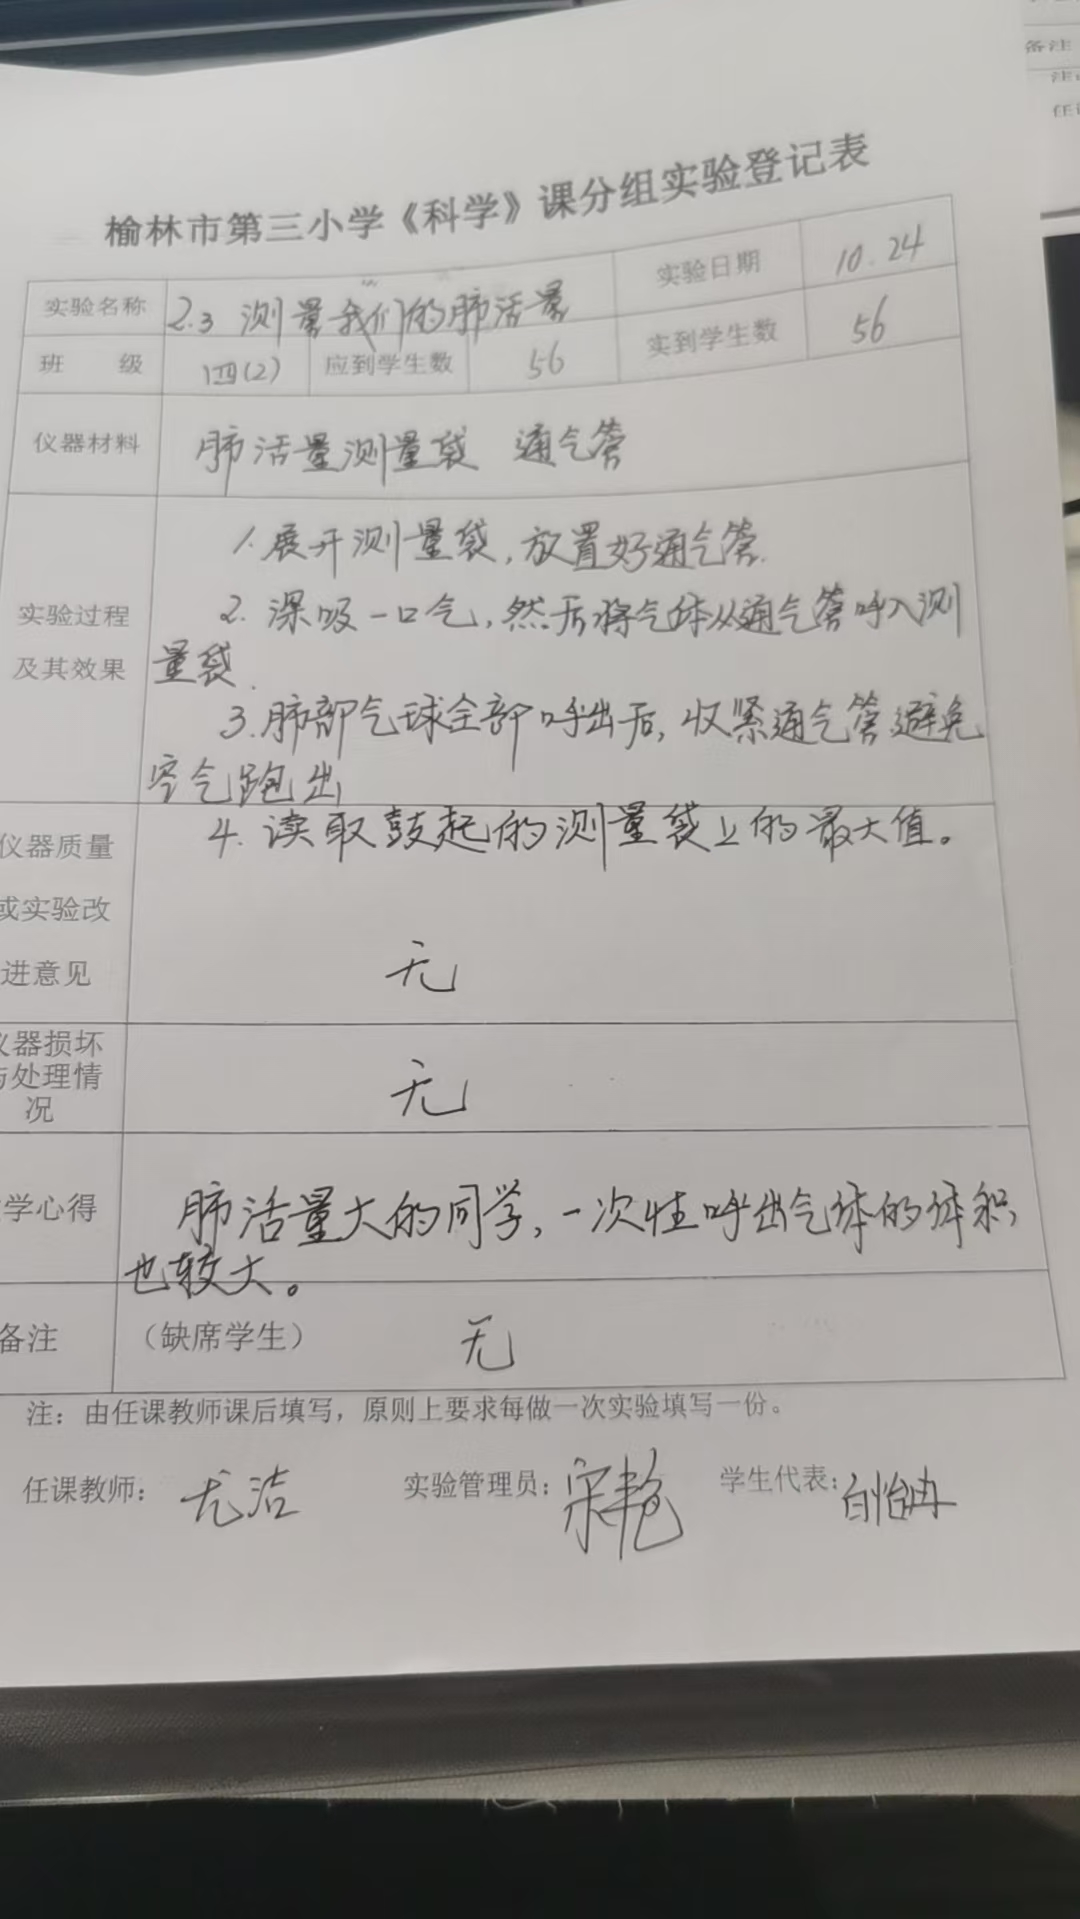 备注
榆林市第三小学《科学》课分组实验登记表
实验名称 2.3 测量我们的肺活量 实验日期 10.24
班 级 四(2) 应到学生数 56 实到学生数 56
仪器材料 肺活量测量袋 通气管
1.展开测量袋,放置好通气管.
实验过程 2.深吸一口气,然后将气体从通气管呼入测
及其效果 量袋.
3.肺部气球全部呼出后,收紧通气管避免
空气跑出
仪器质量 4.读取鼓起的测量袋上的最大值。
或实验改
进意见 无
仪器损坏
与处理情 无
况
学心得 肺活量大的同学,一次性呼出气体的体积
也较大。
备注 (缺席学生) 无
注:由任课教师课后填写,原则上要求每做一次实验填写一份。
任课教师: 尤洁 实验管理员: 宋艳 学生代表: 白怡冉